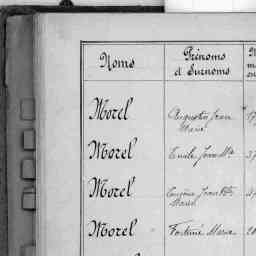 Noms
Prénoms
et Surnoms
Morel
Augustin Jean
Marie
Morel
Emile Jean Mie
37
Morel
Eugène Jean Bte
Marcel
Morel
Fortuné Marie
20